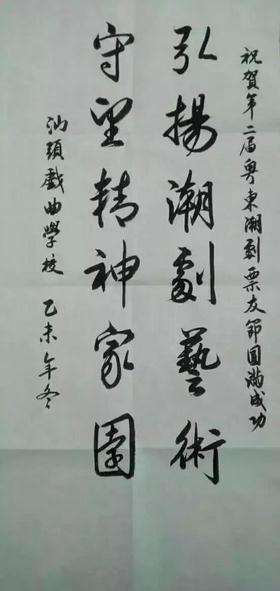 祝賀年二届粤東潮劇票友節圓滿成功
弘揚潮劇藝術
守望精神家園
汕頭戲曲學校 乙未年冬